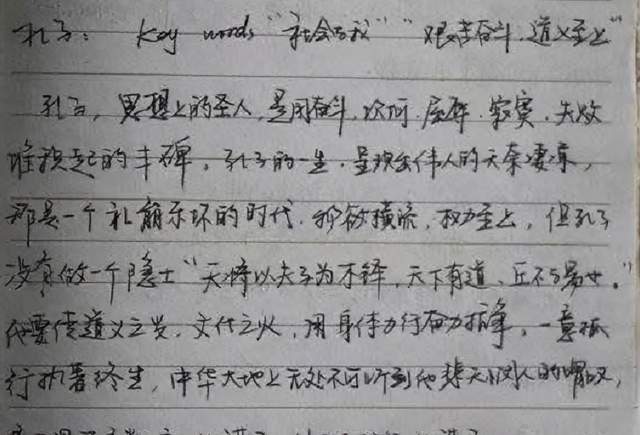 孔子： Key words "社会与我" "艰苦奋斗、道义至上"
孔子，思想上的圣人，是用奋斗、坎坷、屈辱、寂寞、失败
堆积起的丰碑，孔子的一生，呈现出伟人的天秦凄凉，
那是一个礼崩乐坏的时代，物欲横流，权力至上，但孔子
没有做一个隐士"天将以夫子为木铎，天下有道，丘不与易也。"
他要传道义之光，文化之火，用身体力行奋力抗争，一意孤
行执著终生，中华大地上无处不可听到他悲天悯人的喟叹，